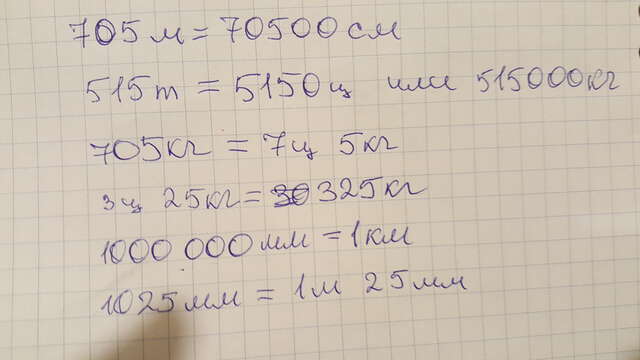 705 м = 70500 см
515 т = 5150 ц или 515000 кг
705 кг = 7 ц 5 кг
3 ц 25 кг = 325 кг
1000 000 мм = 1 км
1025 мм = 1 м 25 мм